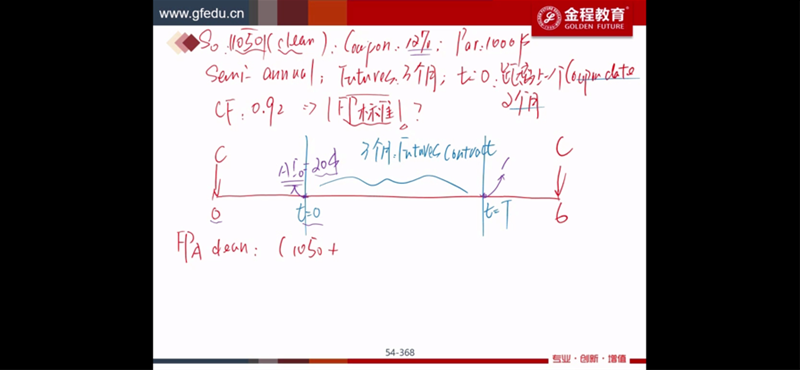 www.gfedu.cn
金程教育
GOLDEN FUTURE
S₀: 1050 (clean). Coupon: 12%; Par. 1000元
Semi-annual; Futures: 3个月; t=0. 距离上一个Coupon date
2个月
CF. 0.92 => |FP标准| ?
C
AI₀=20
3个月. Futures Contract
C
0
t=0
t=T
6
FP_A clean: ( 1050 +
54-368
专业·创新·增值